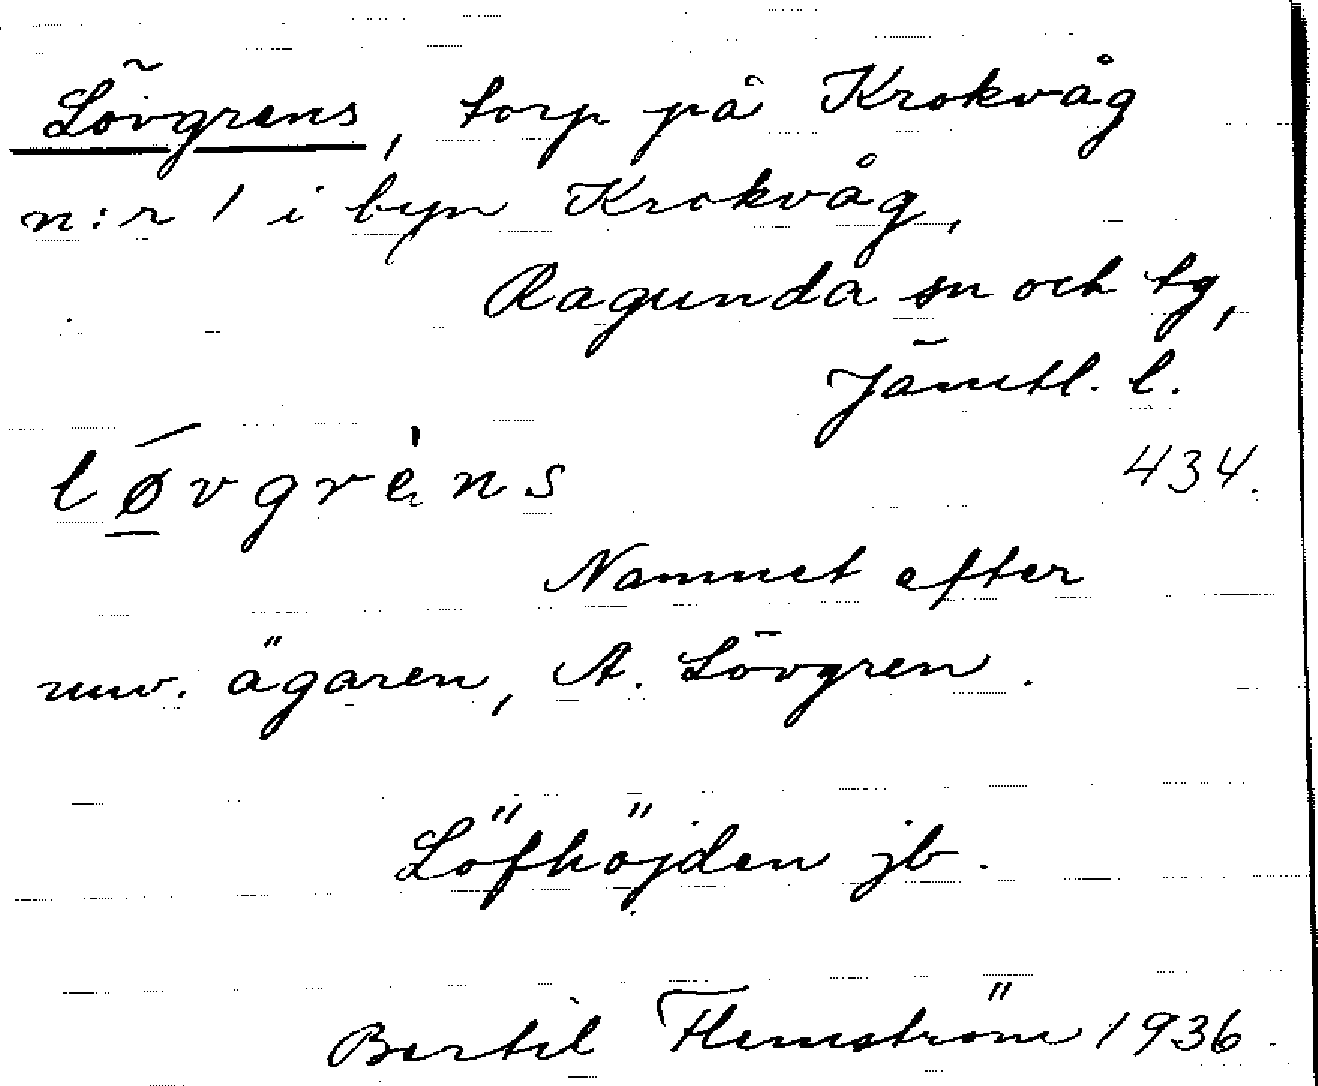 Lövgrens, torp på Krokvåg
n:r 1 i byn Krokvåg,
Ragunda sn och tg,
Jämtl. l.
lǿ̲vgrèns 434.
Namnet efter
nuv. ägaren, A. Lövgren.
Löfhöjden jb.
Bertil Flemström 1936.